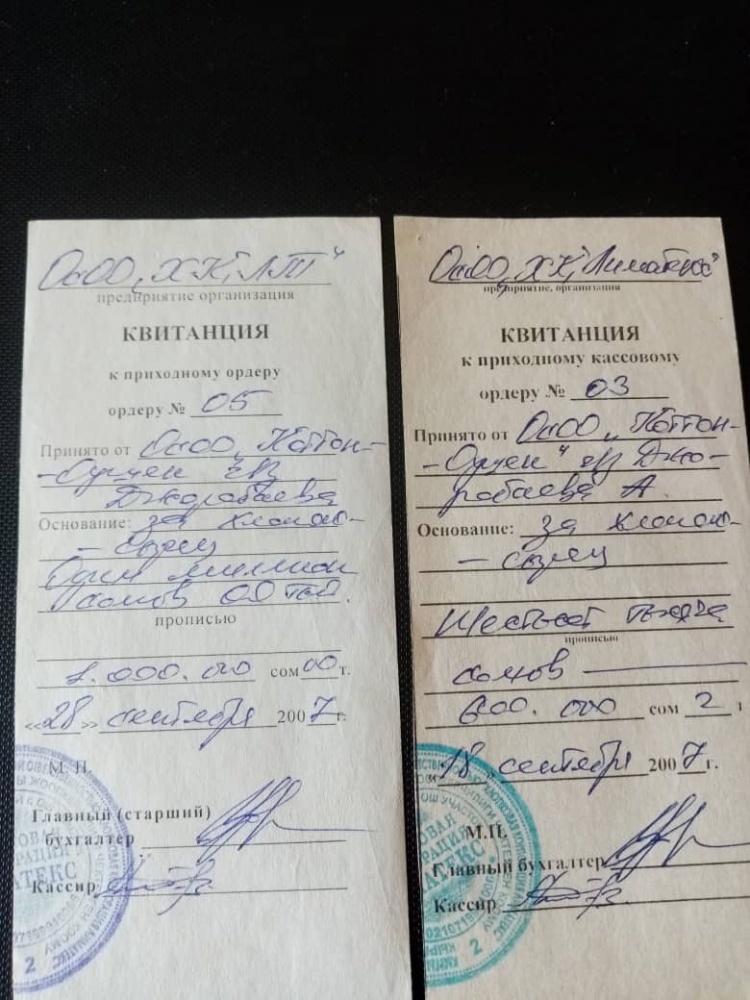 ОсОО „ХК„ЛТ“
предприятие организация
КВИТАНЦИЯ
к приходному ордеру
ордеру № 05
Принято от ОсОО „Коттон-
Джорабаева
Основание: за хлопок-
- сырец
Один миллион
сомов 00 тый.
прописью
1.000.000 сом 00 т.
«28» сентября 2007 г.
М. П.
Главный (старший)
бухгалтер
Кассир
АТЕКС
2
ОсОО, ХК„Лиматекс“
предприятие, организация
КВИТАНЦИЯ
к приходному кассовому
ордеру № 03
Принято от ОсОО „Коттон-
Джо-
рабаева А.
Основание: за хлопок-
- сырец
Шестьсот тысяча
прописью
сомов
600. 000 сом 2 т
18 сентября 2007 г.
М.П.
Главный бухгалтер
Кассир
АТЕКС
2